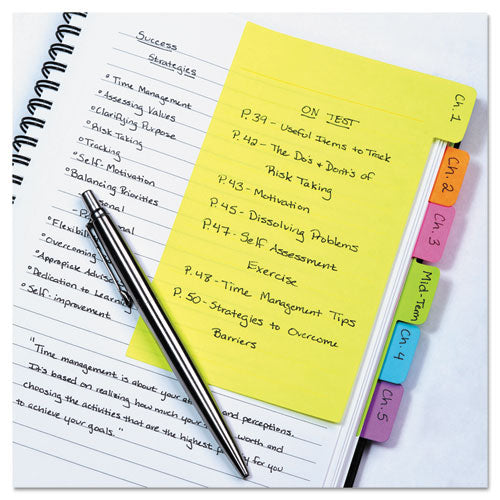 Success
Strategies
• Time Management
• Assessing Values
• Clarifying Purpose
• Risk Taking
• Tracking
• Self-Motivation
• Balancing Priorities
Personal
Personal
• Flexibility
• Overcoming
• Appropiate Advise
• Dedication to Learning
• Self-improvement
"Time management is about your and perceptions.
It's based on realizing how much your worth and
choosing the activities that are the highest for you
to achieve your goals."
ON TEST
P.39 - Useful Items to Track
P.42 - The Do's & Dont's of
Risk Taking
P.43 - Motivation
P.45 - Dissolving Problems
P.47 - Self Assessment
Exercise
P.48 - Time Management Tips
P.50 - Strategies to Overcome
Barriers
Ch. 1
Ch. 2
Ch. 3
Mid-Term
Ch. 4
Ch. 5